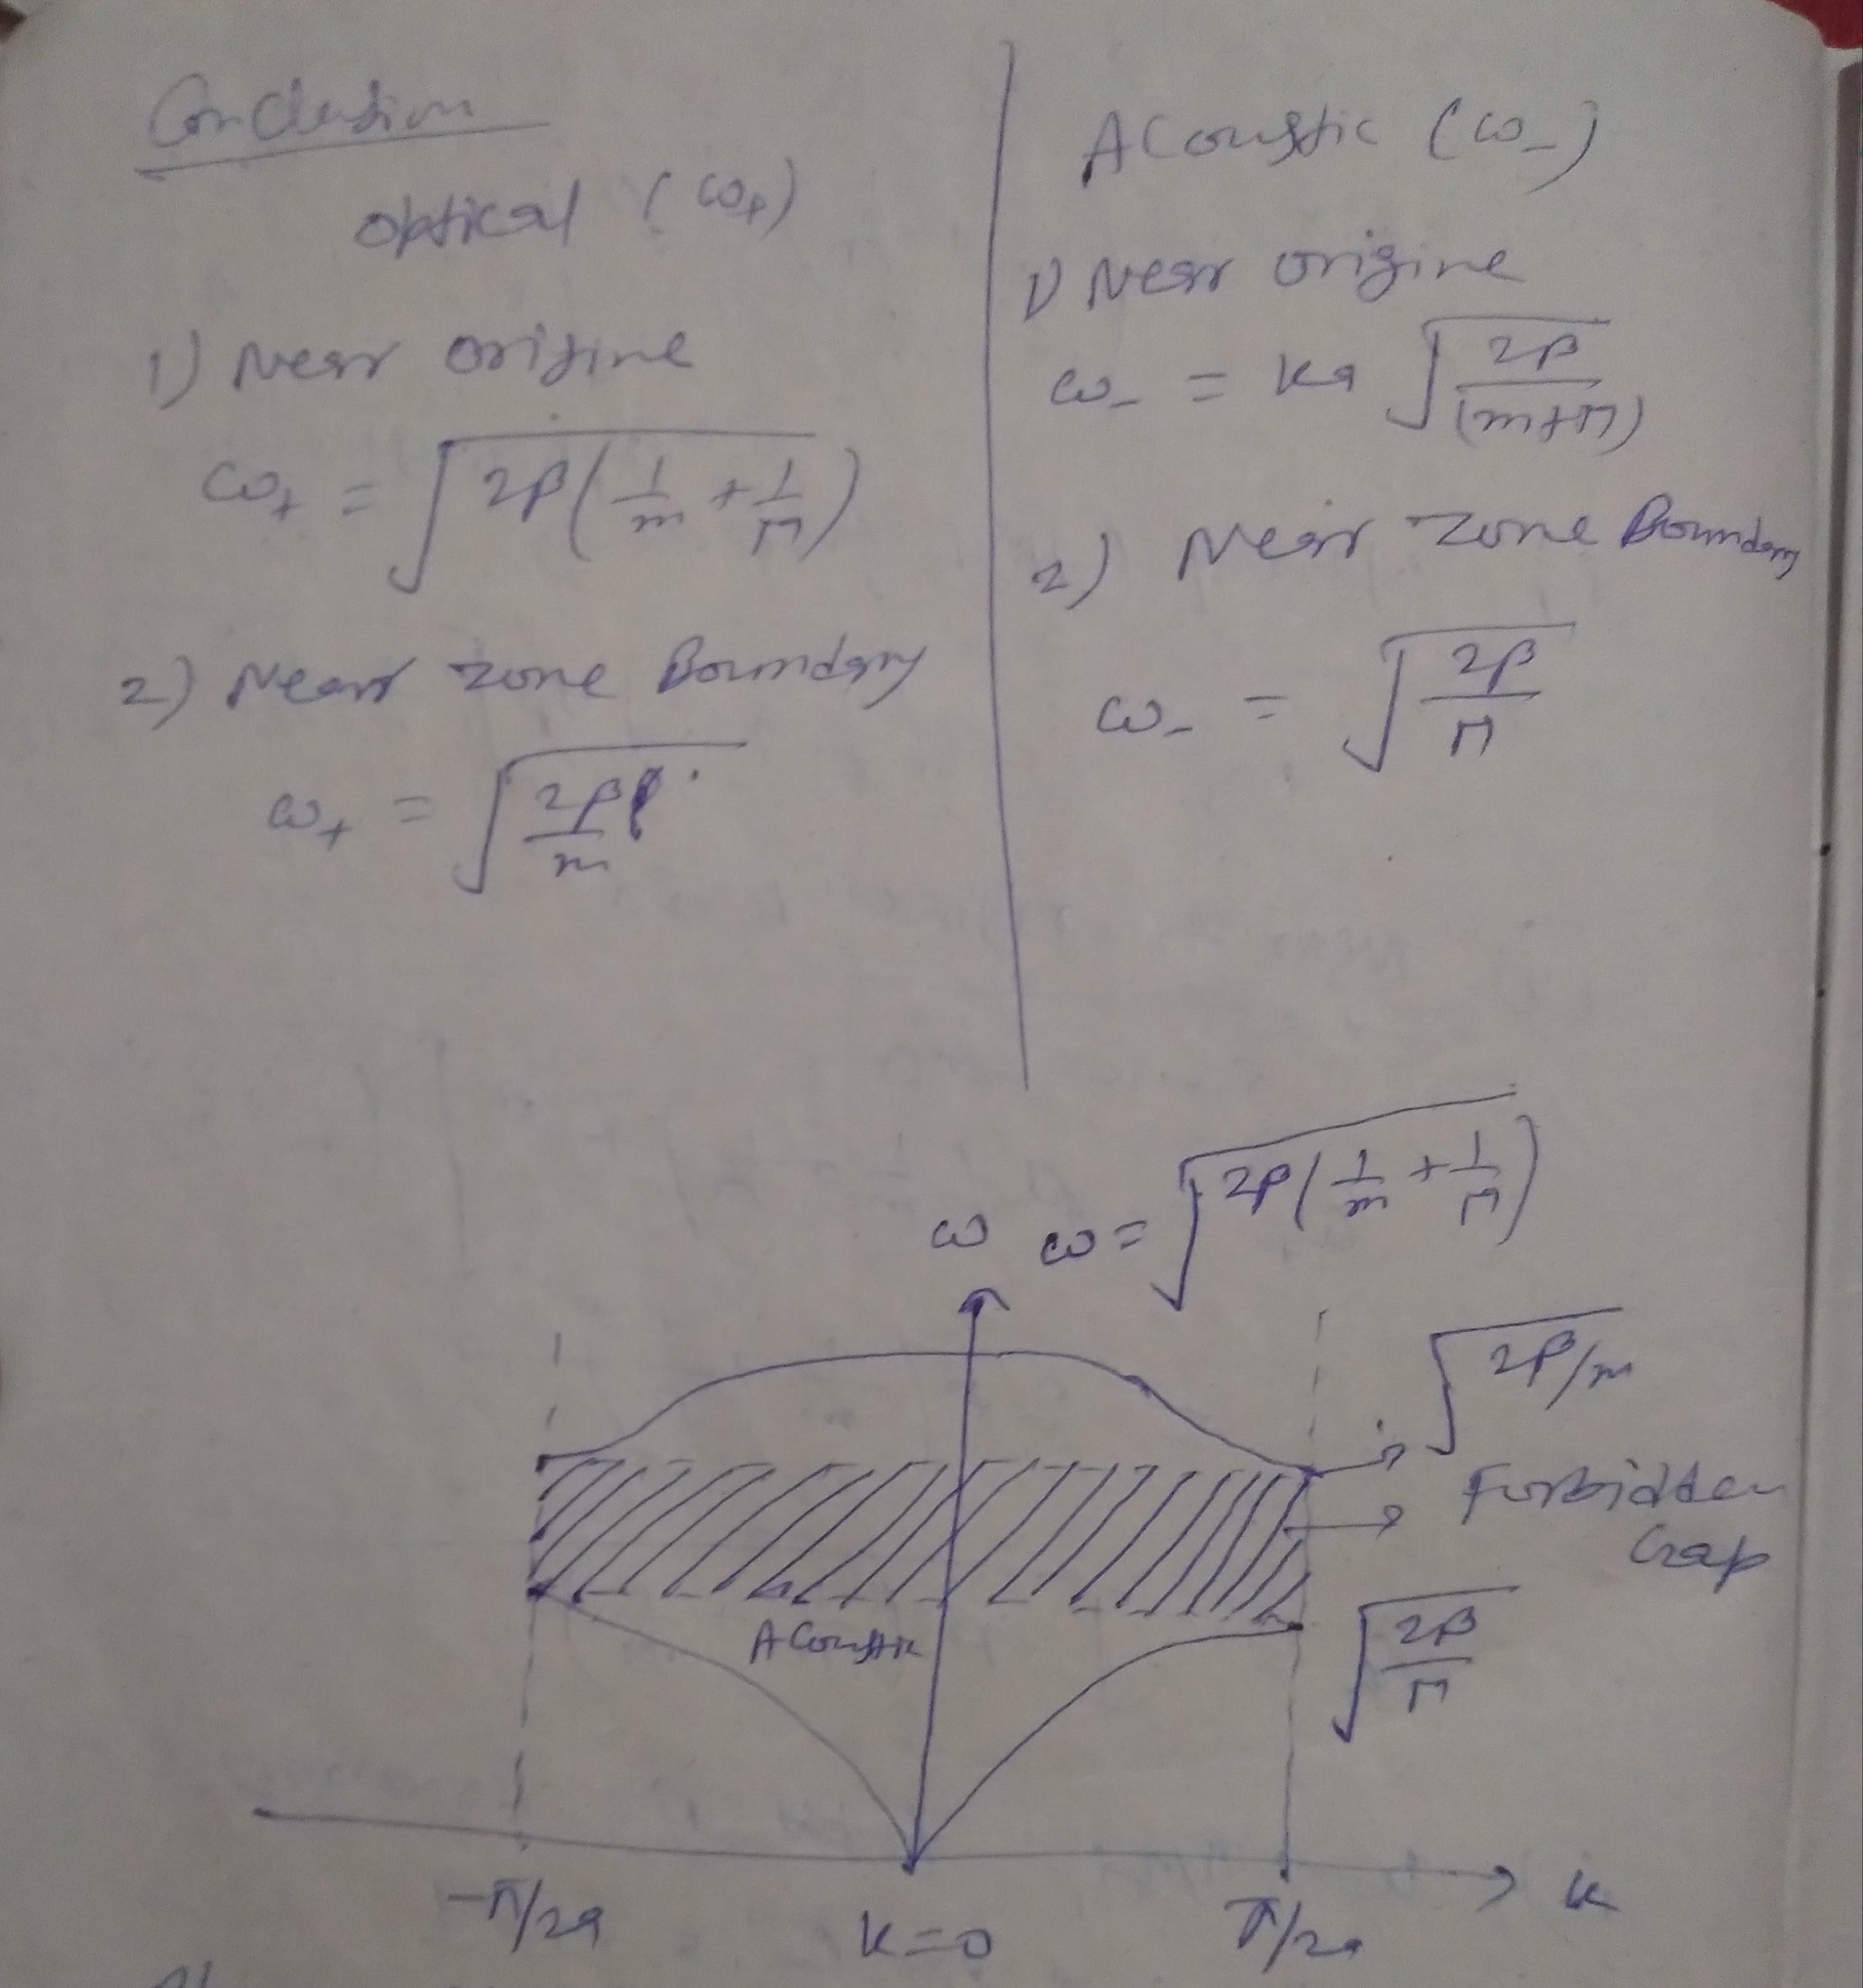 Conclusion
Optical (ω₊)
1) Near origine
ω₊ = √(2β(1/m + 1/M))
2) Near zone Boundary
ω₊ = √(2β/m)
Acoustic (ω₋)
1) Near origine
ω₋ = Ka √(2β/(m+M))
2) Near zone Boundary
ω₋ = √(2β/M)
ω ω = √(2β(1/m + 1/M))
√(2β/m)
Forbidden
Gap
Acoustic
√(2β/M)
-π/2a K=0 π/2a K